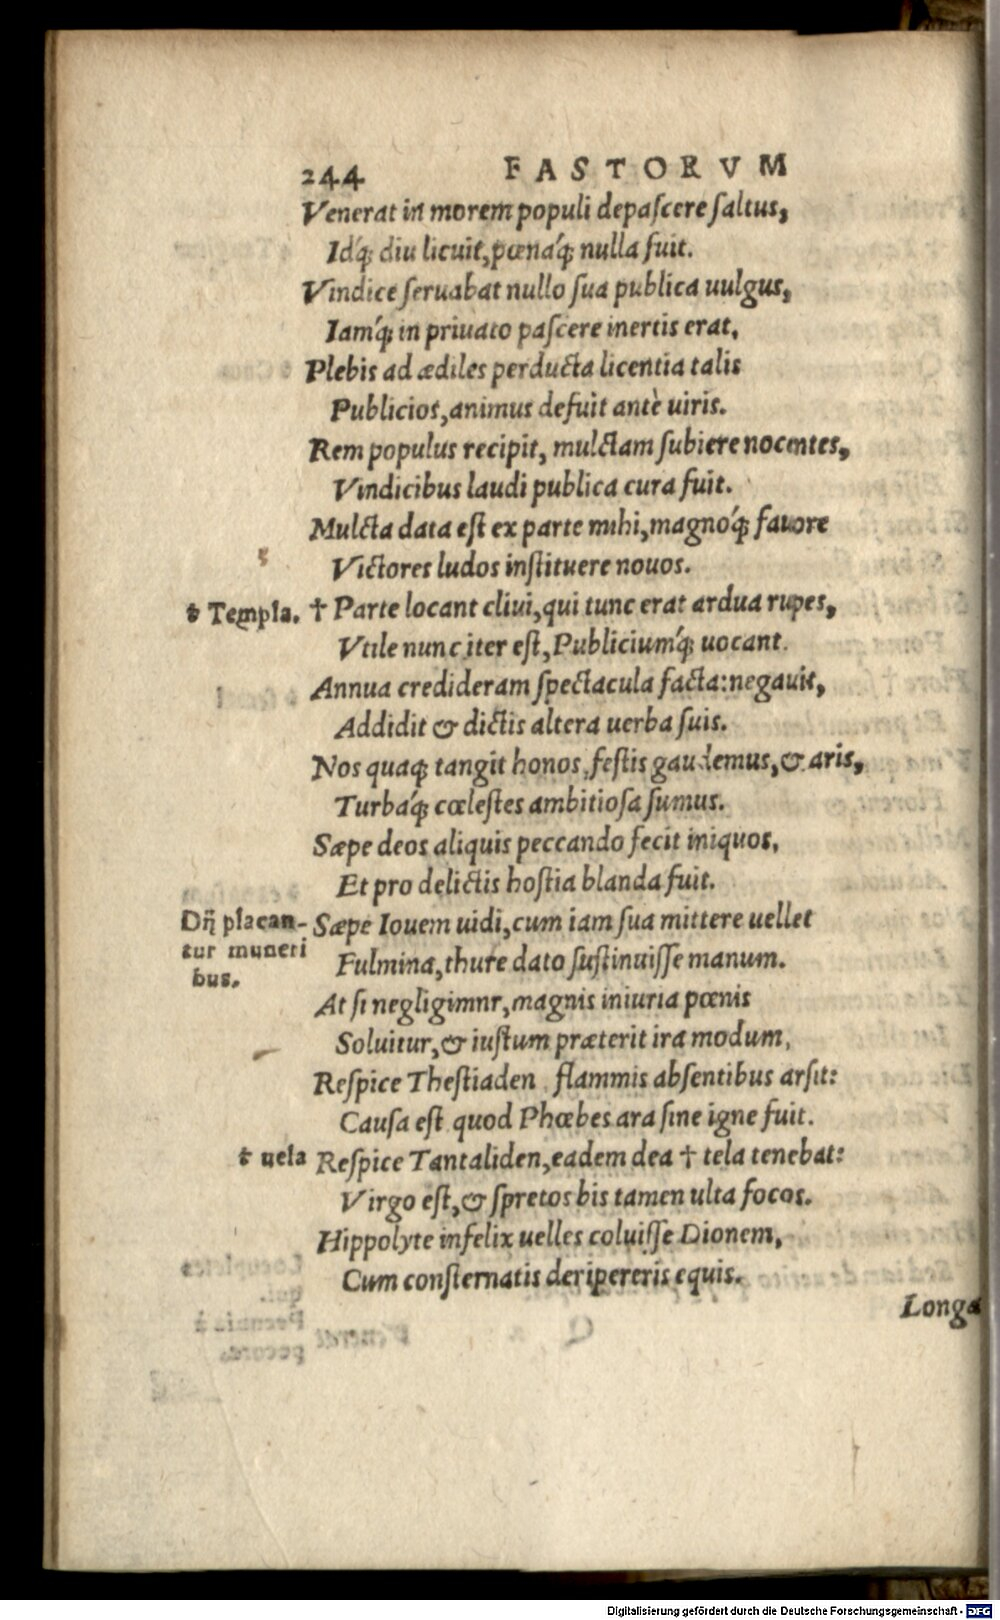 244 FASTORVM
Venerat in morem populi depaſcere ſaltus,
Idq́; diu licuit, pœnaq́; nulla fuit.
Vindice ſeruabat nullo ſua publica uulgus,
Iamq́; in priuato paſcere inertis erat,
Plebis ad ædiles perducta licentia talis
Publicios, animus defuit antè uiris.
Rem populus recipit, mulctam ſubiere nocentes,
Vindicibus laudi publica cura fuit.
Mulcta data eſt ex parte mihi, magnoq́; fauore
Victores ludos inſtituere nouos.
‡ Templa. † Parte locant cliui, qui tunc erat ardua rupes,
Vtile nunc iter eſt, Publiciumq́; uocant.
Annua credideram ſpectacula facta: negauit,
Addidit & dictis altera uerba ſuis.
Nos quaq; tangit honos, feſtis gaudemus, & aris,
Turbaq́; cœleſtes ambitioſa ſumus.
Sæpe deos aliquis peccando fecit iniquos,
Et pro delictis hoſtia blanda fuit.
Dij placan- Sæpe Iouem uidi, cum iam ſua mittere uellet
tur muneri Fulmina, thure dato ſuſtinuiſſe manum.
bus.
At ſi negligimnr, magnis iniuria pœnis
Soluitur, & iuſtum præterit ira modum,
Reſpice Theſtiaden flammis abſentibus arſit:
Cauſa eſt quod Phœbes ara ſine igne fuit.
‡ uela Reſpice Tantaliden, eadem dea † tela tenebat:
Virgo eſt, & ſpretos bis tamen ulta focos.
Hippolyte infelix uelles coluiſſe Dionem,
Cum conſternatis deripereris equis.
Longa
Digitalisierung gefördert durch die Deutsche Forschungsgemeinschaft - DFG